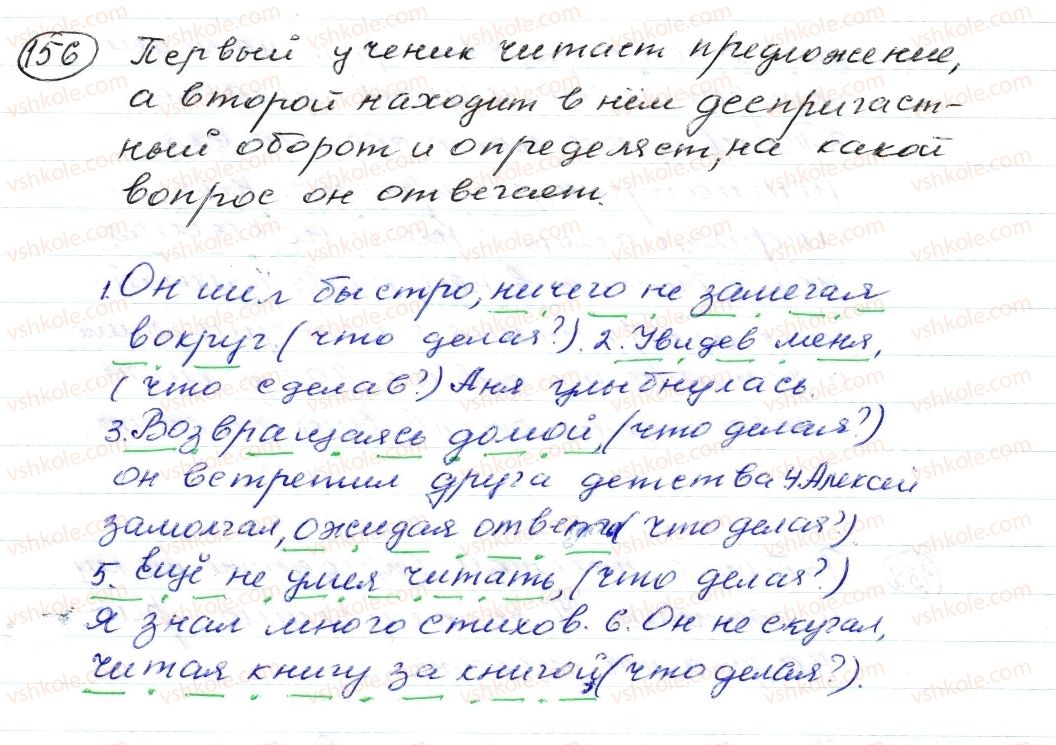 156 Первый ученик читает предложение,
а второй находит в нём деепричаст-
ный оборот и определяет, на какой
вопрос он отвечает.
1. Он шёл быстро, ничего не замечая
вокруг (что делая?). 2. Увидев меня,
(что сделав?) Аня улыбнулась.
3. Возвращаясь домой, (что делая?)
он встретил друга детства 4 Алексей
замолчал, ожидая ответа (что делая?)
5. Ещё не умея читать, (что делая?)
Я знал много стихов. 6. Он не скучал,
читая книгу за книгой (что делая?).